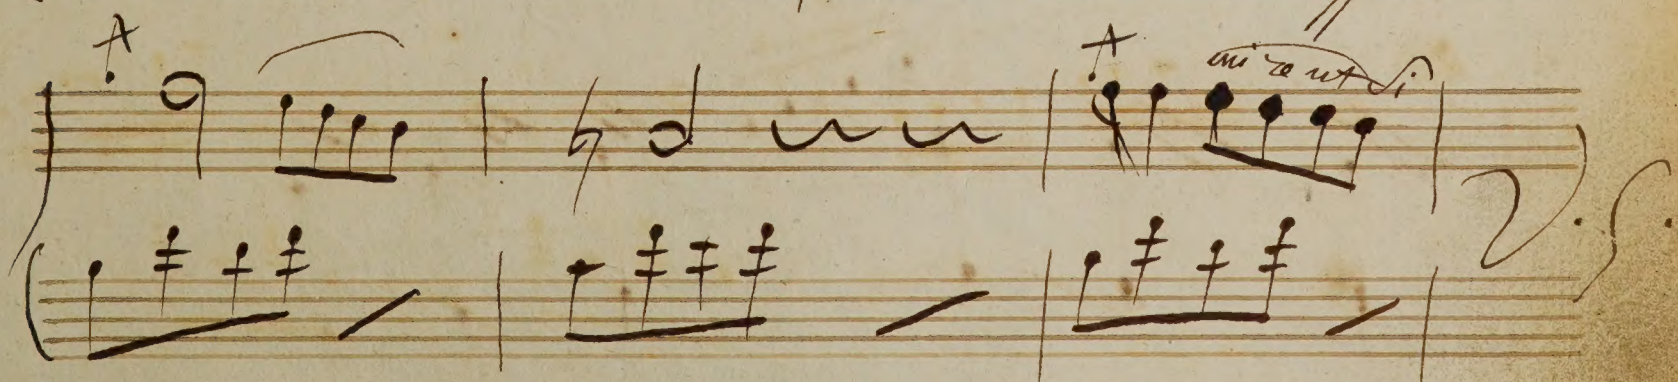 A A
mi re ut si
V. S.